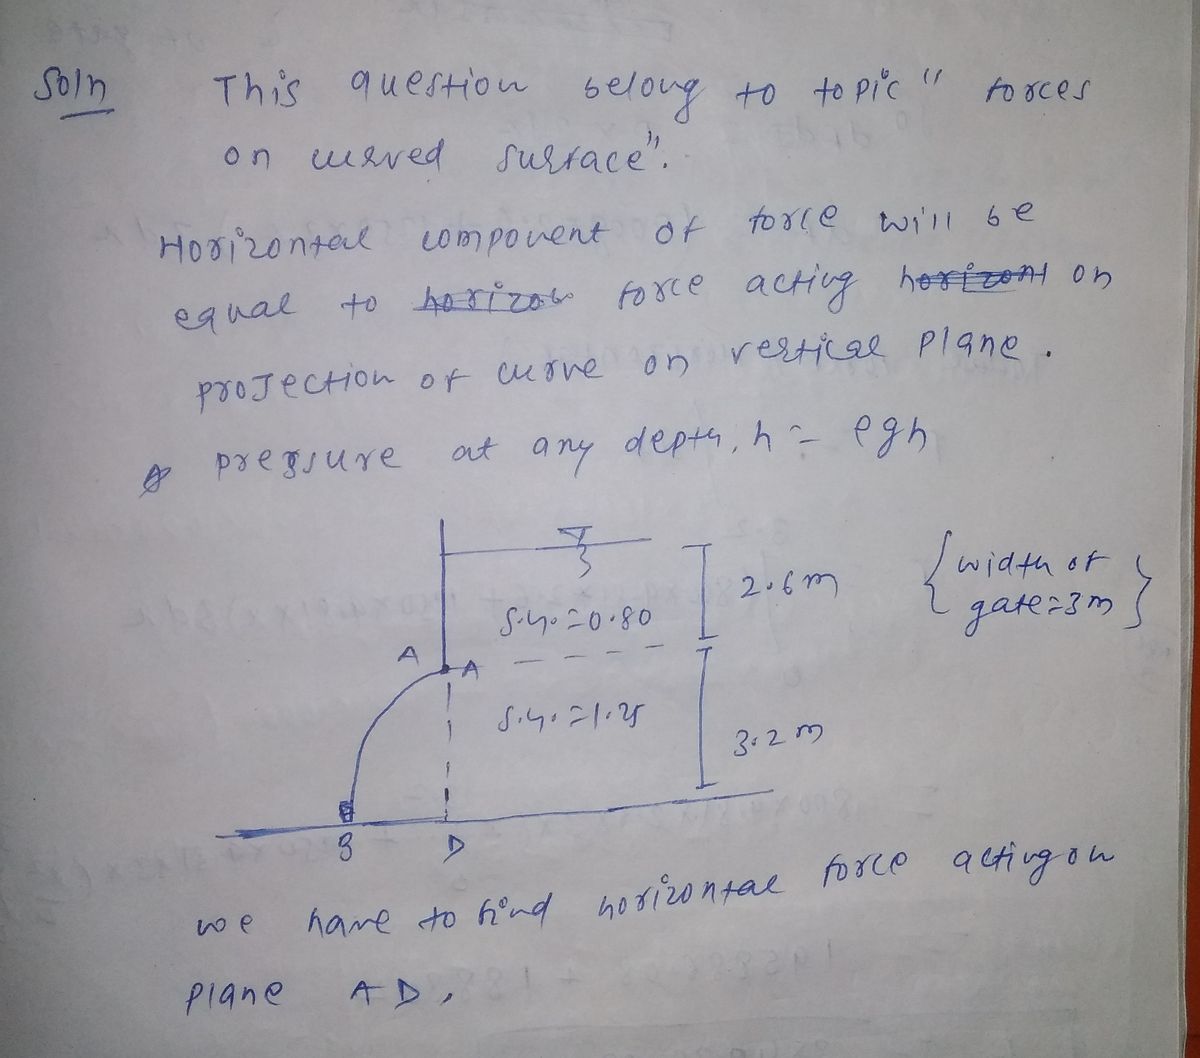 Soln This question belong to topic " forces
on curved surface".
Horizontal component of force will be
equal to force acting on
projection of curve on vertical plane.
pressure at any depth, h = ρgh
2.6 m
{ width of
gate = 3m }
S.G. = 0.80
A A
S.G. = 1.25
3.2 m
B D
we have to find horizontal force acting on
plane AD.